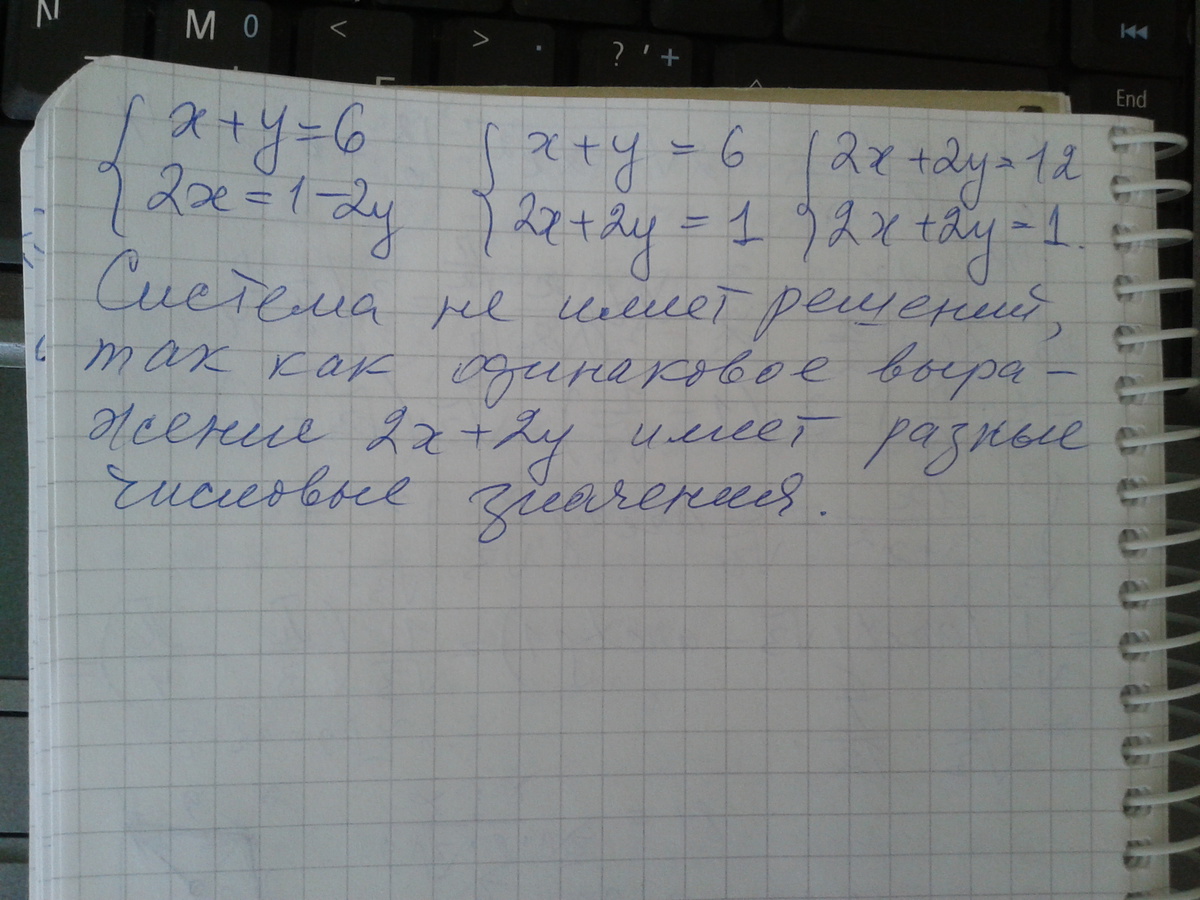 N M O < > . ? ' + ⏮
End
{ x + y = 6 { x + y = 6 { 2x + 2y = 12
{ 2x = 1 - 2y { 2x + 2y = 1 { 2x + 2y = 1.
Система не имеет решений,
так как одинаковое выра-
жение 2x + 2y имеет разные
числовые значения.